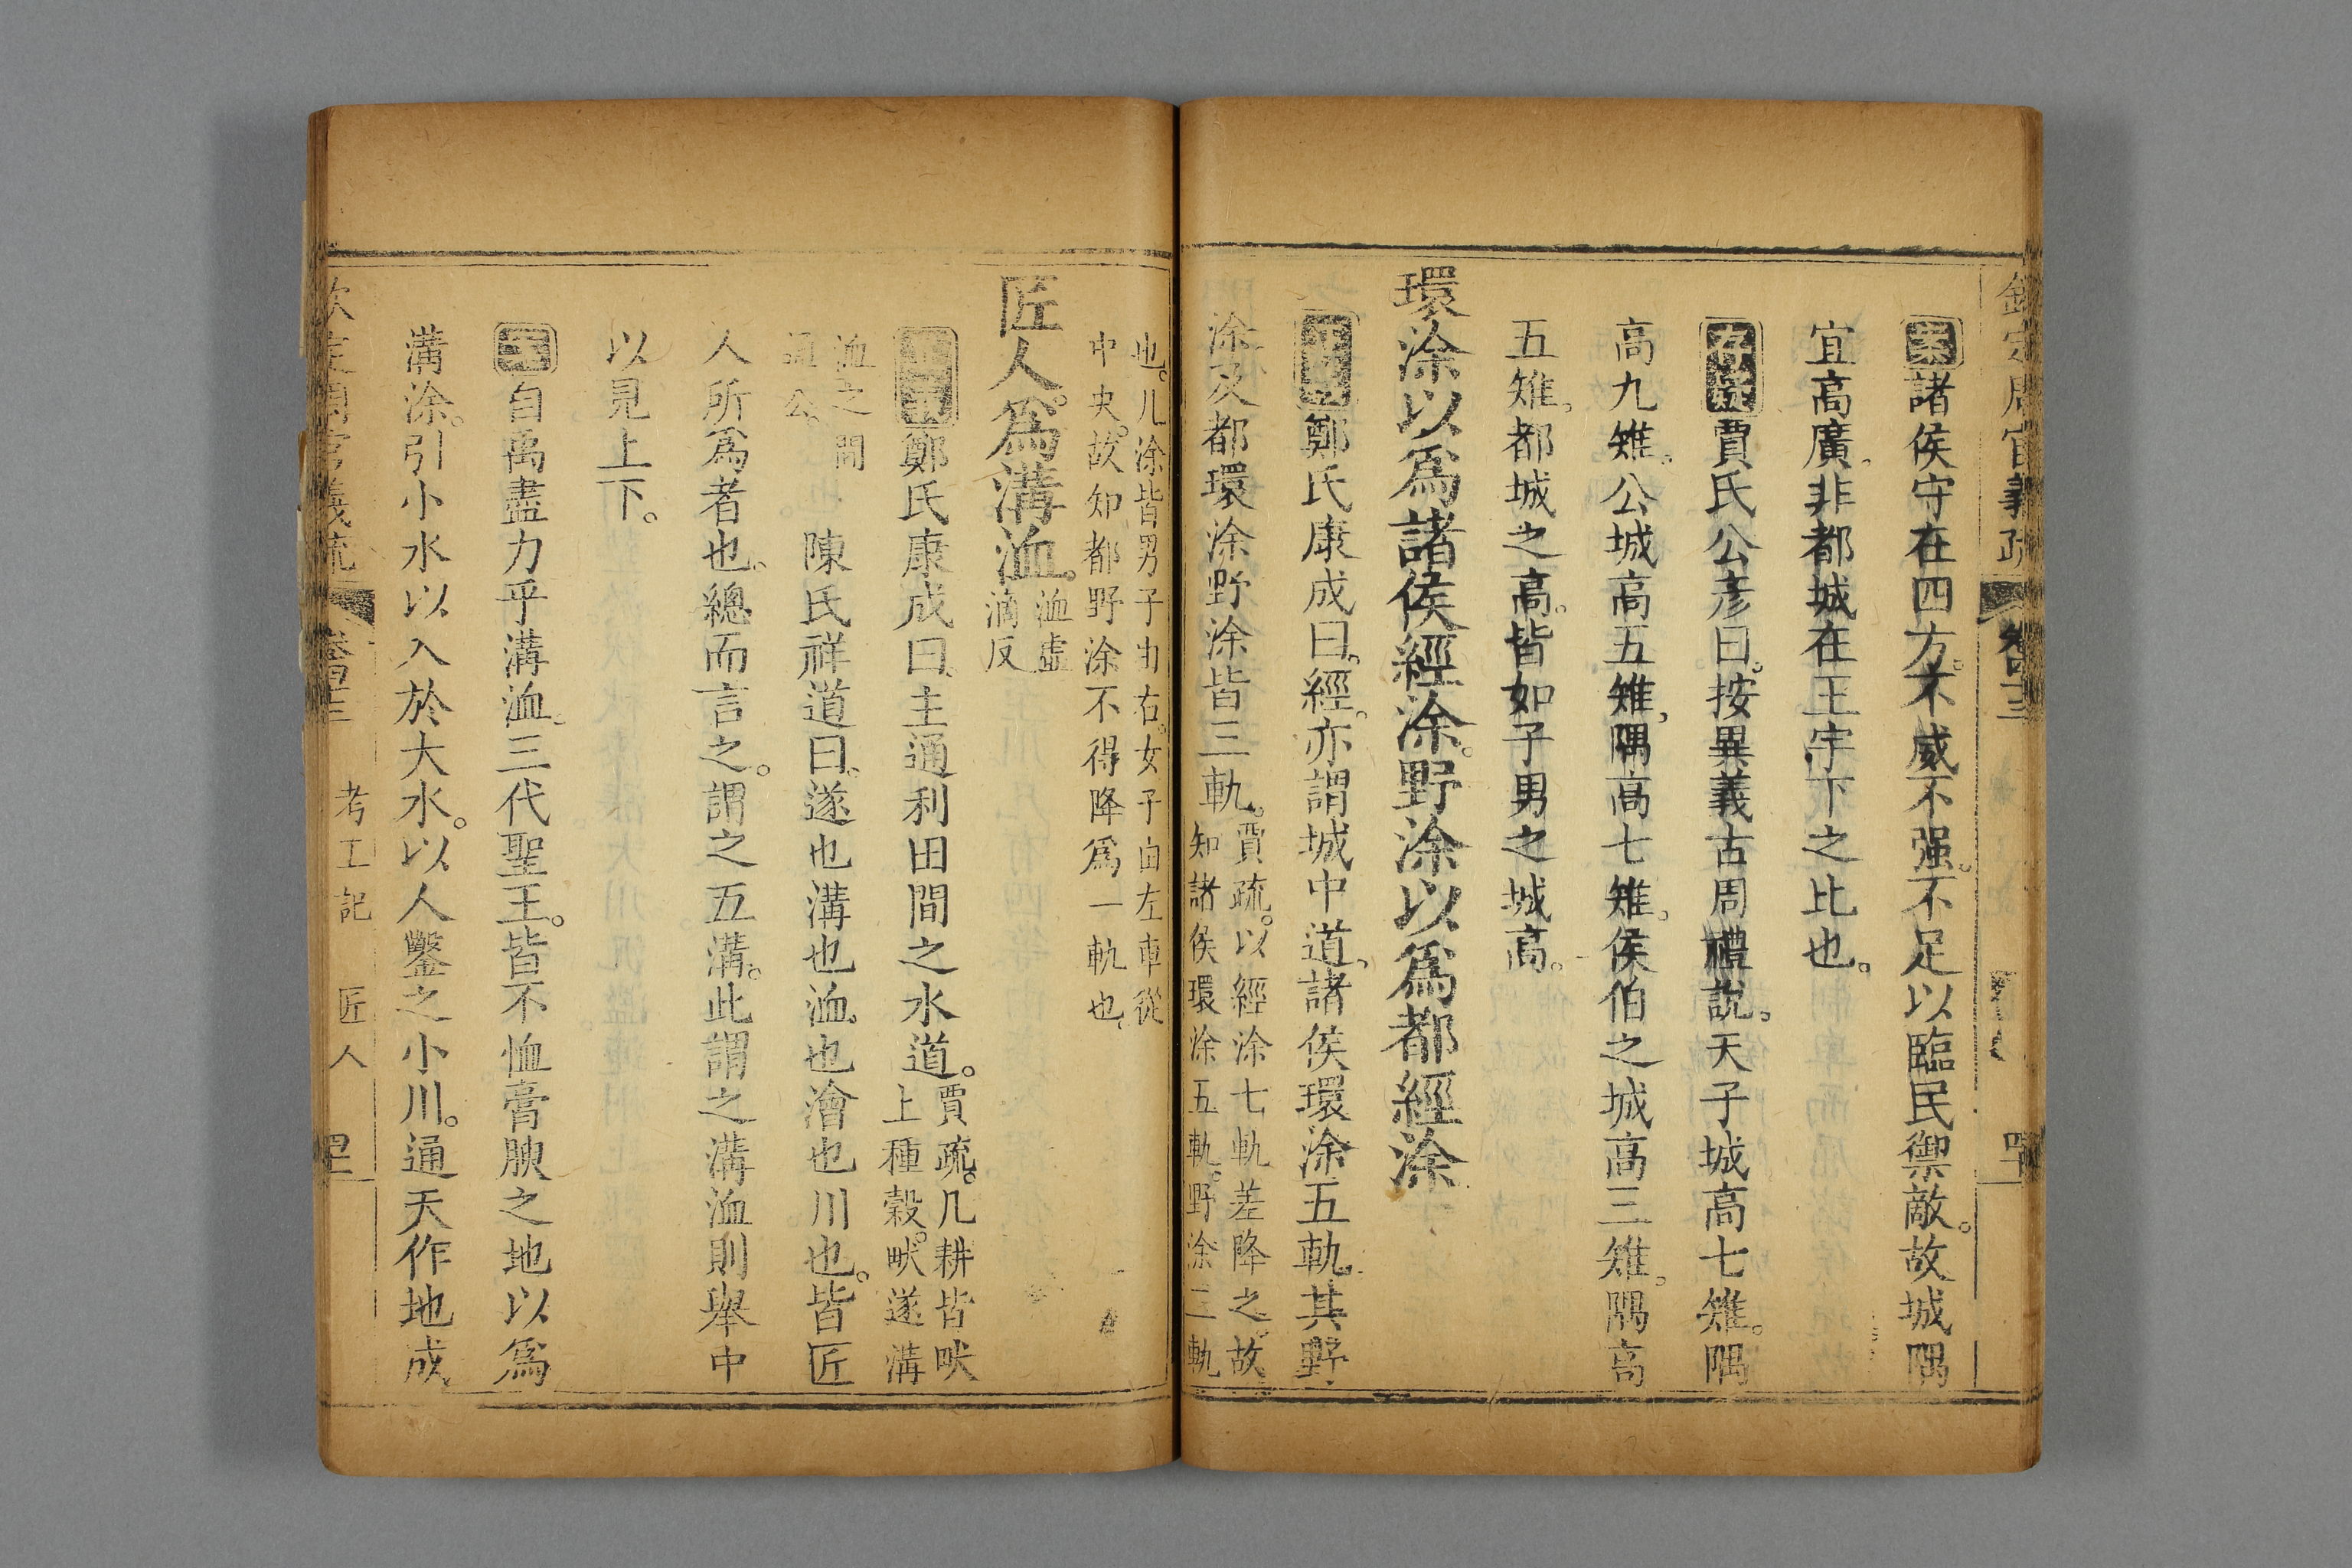 欽定周官義疏 卷四十三 四十
案諸侯守在四方。不威不强。不足以臨民禦敵。故城隅
宜高廣。非都城在王宇下之比也。
存疑賈氏公彥曰。按異義古周禮說。天子城高七雉。隅
高九雉。公城高五雉。隅高七雉。侯伯之城高三雉。隅高
五雉。都城之高。皆如子男之城高。
環涂以爲諸侯經涂。野涂以爲都經涂
鄭氏康成曰。經。亦謂城中道。諸侯環涂五軌。其野
涂及都環涂野涂皆三軌。賈疏。以經涂七軌差降之。故
知諸侯環涂五軌。野涂三軌
也。凡涂皆男子由右。女子由左。車從
中央。故知都野涂不得降爲一軌也。
匠人。爲溝洫。洫虛
滴反
鄭氏康成曰。主通利田間之水道。賈疏。凡耕皆畎
上種穀。畎遂溝
洫之間
通公。陳氏祥道曰。遂也溝也洫也澮也川也。皆匠
人所爲者也。總而言之。謂之五溝。此謂之溝洫則舉中
以見上下。
案自禹盡力乎溝洫。三代聖王。皆不恤膏腴之地以爲
溝涂。引小水以入於大水。以人鑿之小川。通天作地成
欽定周官義疏 卷四十三 考工記 匠人